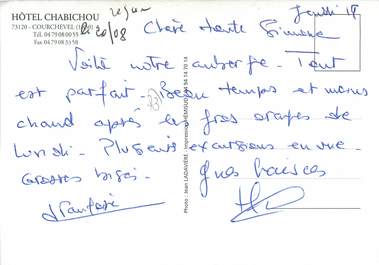 HÔTEL CHABICHOU
73120 - COURCHEVEL
Tél. 04 79 08 00 55
Fax 04 79 08 33 58
reçu
le 20/08
Jeudi 19
Chère tante Simone
Voilà notre auberge. Tout
est parfait. Beau temps et moins
chaud après les gros orages de
lundi. Plusieurs excursions en vue.
Grosses bises. Gros baisers
Photo : Jean LADAVIÈRE - Impression
04 94 14 70 14